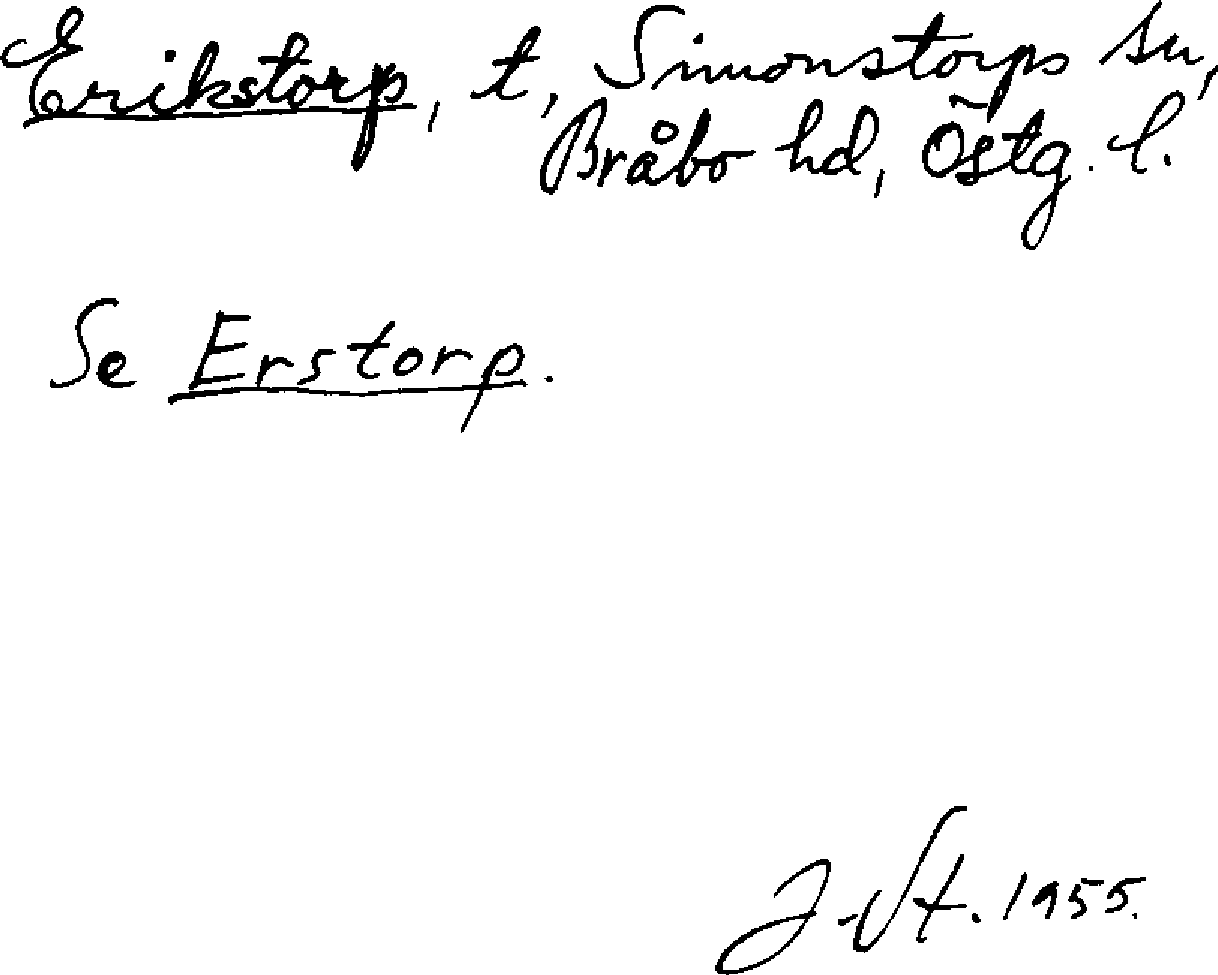 Erikstorp, t, Simonstorps sn,
Bråbo hd, Östg. l.
Se Erstorp.
J. St. 1955.